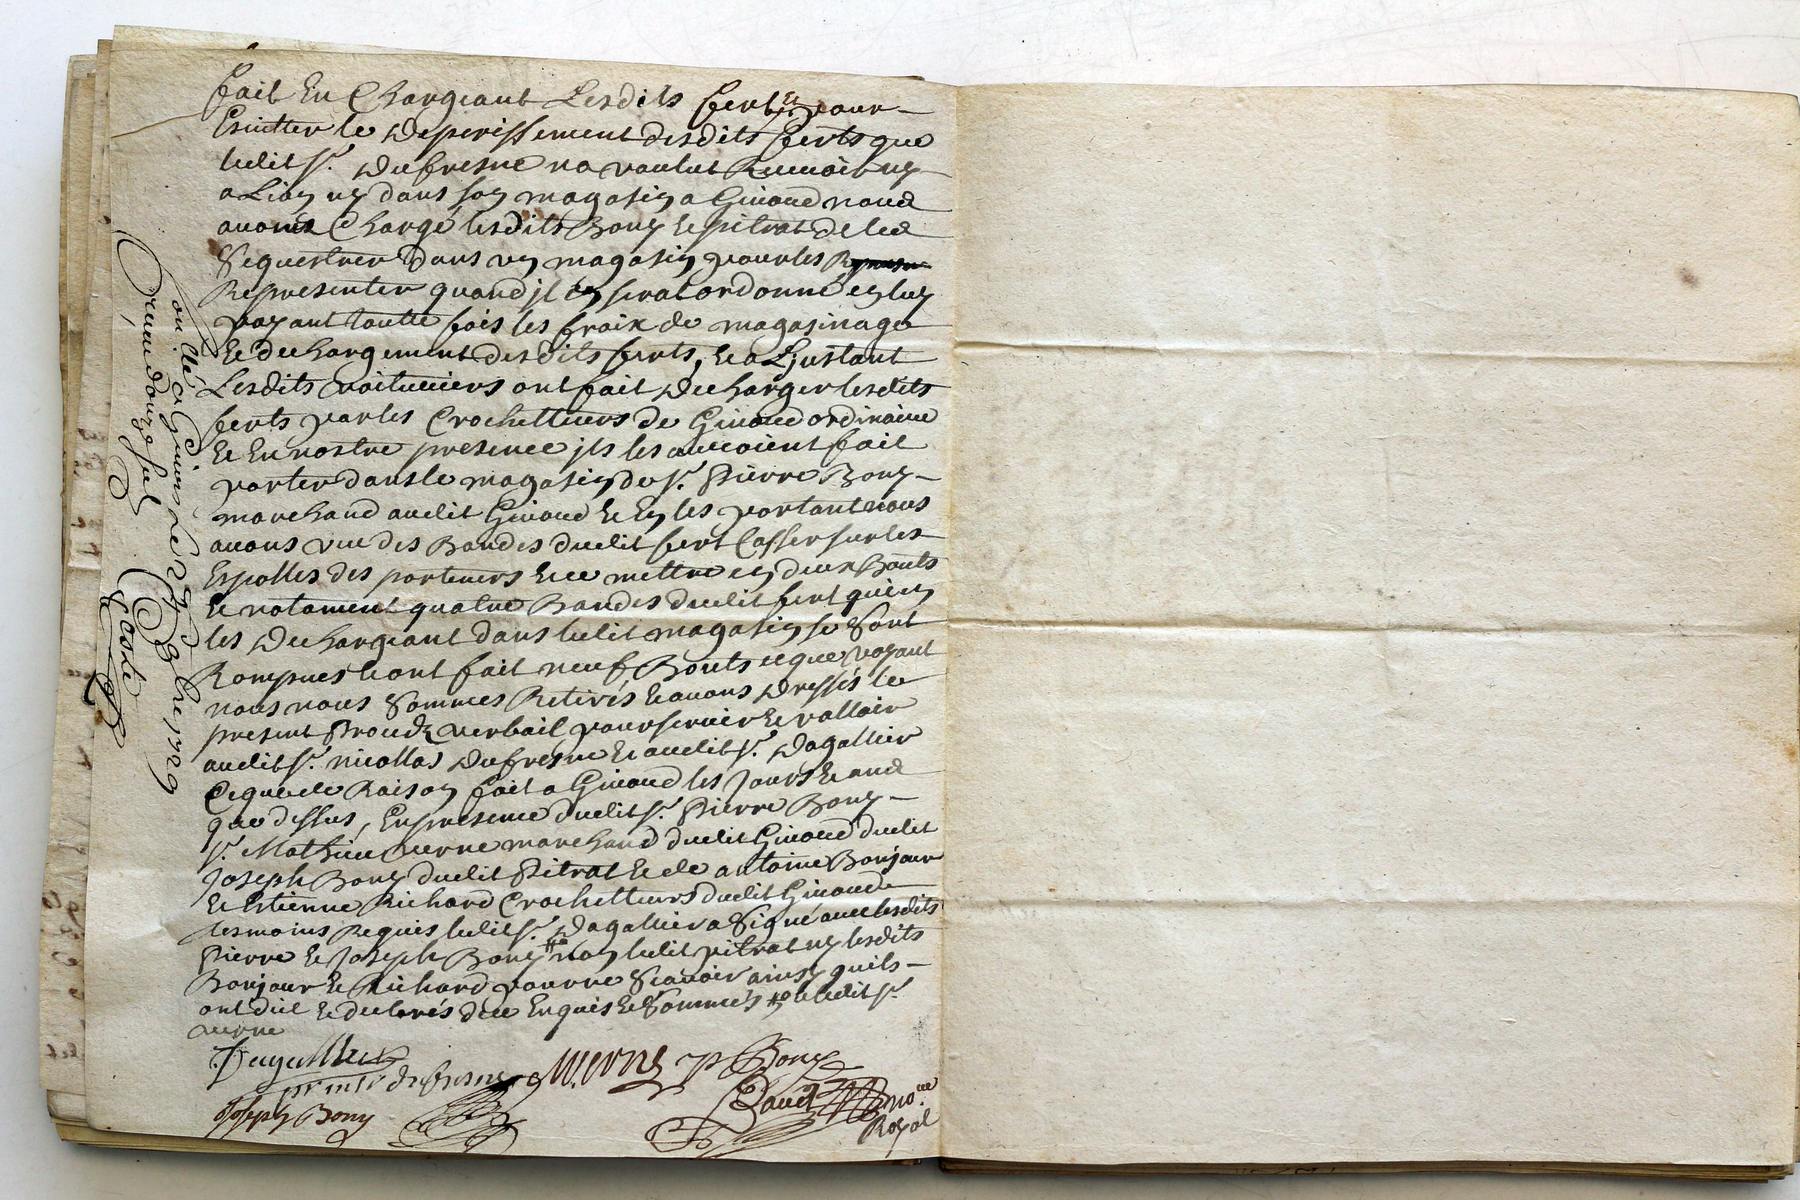 fait En Chargeant Lesdits fert Et pour
Esuitter le deperissement desdits ferts que
ledit sr. dufresne na voulut Recevoir ny
a Lion ny dans son magasin a Givord nous
avons Chargé lesdits Bony et pitrat de les
Sequestrer dans un magasin pour les
Representer quand jl en serat ordonné en luy
payant toutte fois les fraix de magasinage
Et dechargement desdits ferts, Et a Ljnstant
Lesdits voituriers ont fait decharger lesdits
ferts par les Crochetteurs de Givord ordinaire
Et En nostre presence jls les auroient fait
porter dans le magasin de sr. Pierre Bony
marchand audit Givord Et En les portant nous
avons vue des Bandes dudit fert Casser sur les
Espolles des porteurs Et ce mettre en deux Bouts
Et notament quatre Bandes dudit fert qui en
les dechargeant dans ledit magasin se Sont
Rompues Et ont fait neuf Bouts ce que voyant
nous nous Sommes Retirés Et avons dressés le
present Procez verbail pour servir Et valloir
audit sr. nicollas dufresne Et audit sr. dagallier
Ce que de Raison fait a Givord les Jours Et and
que dessus, En presence dudit sr. Pierre Bony
sr. Mathieu verne marchand dudit Givord dudit
Joseph Bony dudit Pitrat Et de antoine Bonjour
Et Estienne Richard Crochetteurs dudit Givord
tesmoins Requis ledit sr. dagallier a Signé avec lesdits
Pierre Et Joseph Bony non ledit pitrat ny lesdits
Bonjour Et Richard pour ne Scavoir ainsy quils
ont dit Et declarés de ce Enquis Et Sommés Et ledit sr.
verne
Dagallier
dufresne M verne p Bony
Joseph Bony
no.re
Royal
Givors Le
1729
Reçu douze sol